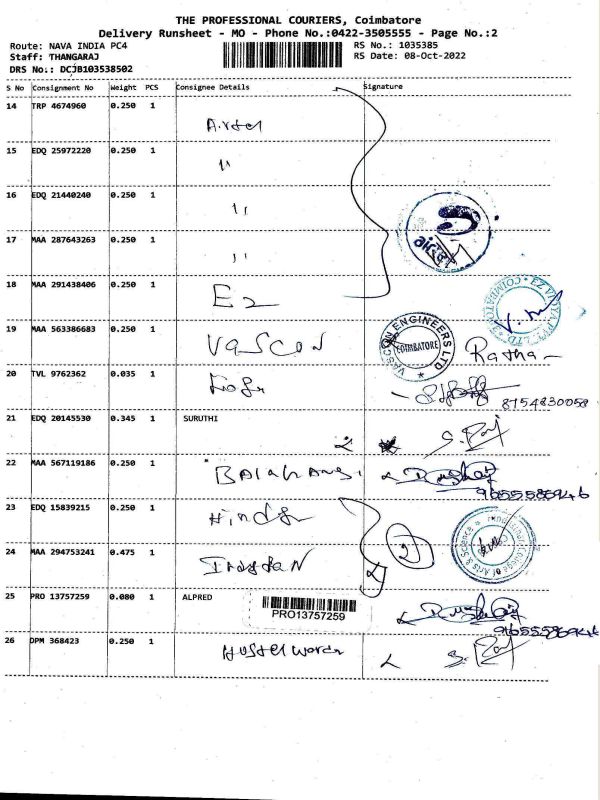 THE PROFESSIONAL COURIERS, Coimbatore
Delivery Runsheet - MO - Phone No.:0422-3505555 - Page No.:2
Route: NAVA INDIA PC4
RS No.: 1035385
Staff: THANGARAJ
RS Date: 08-Oct-2022
DRS No.: DCJB103538502
S No Consignment No Weight PCS Consignee Details Signature
14 TRP 4674960 0.250 1
Airtel
15 EDQ 25972220 0.250 1
"
16 EDQ 21440240 0.250 1
"
17 MAA 287643263 0.250 1
"
airtel
18 MAA 291438406 0.250 1
Ez
COIMBATORE
19 MAA 563386683 0.250 1
VASCON
VASCON ENGINEERS LTD
COIMBATORE
Ratha
20 TVL 9762362 0.035 1
8754830058
21 EDQ 20145530 0.345 1 SURUTHI
S. Raj
22 MAA 567119186 0.250 1
9655586946
23 EDQ 15839215 0.250 1
College of Arts & Science
24 MAA 294753241 0.475 1
2
25 PRO 13757259 0.080 1 ALPRED
PRO13757259
9655586946
26 DPM 368423 0.250 1
Hostel warden
S. Raj